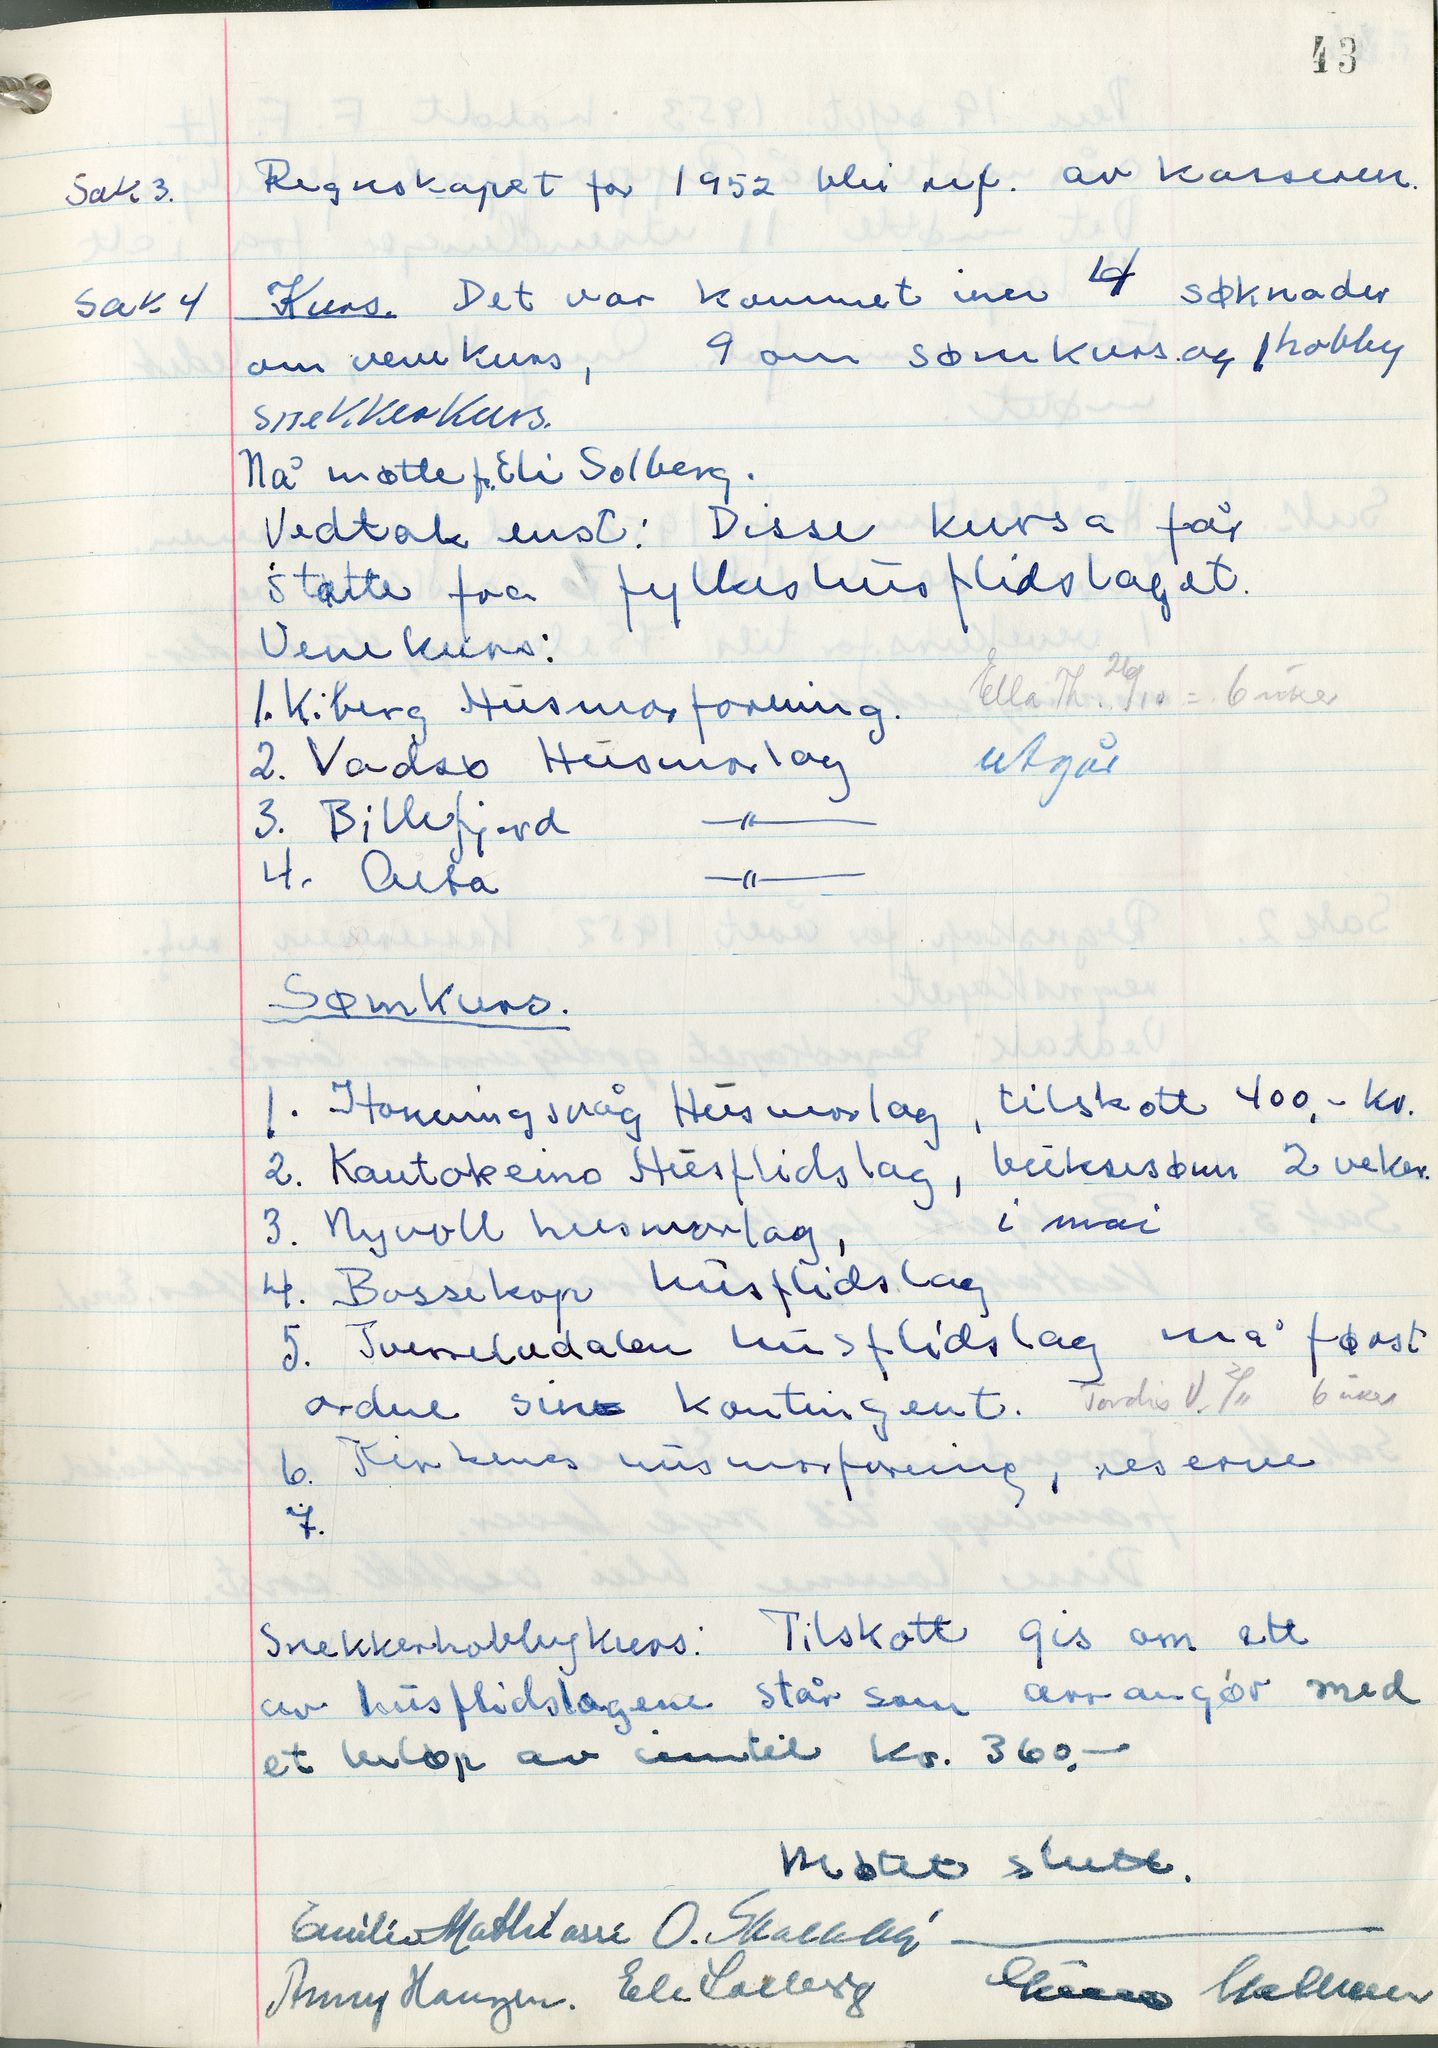 43
Sak 3. Regnskapet for 1952 blei ref. av kasseren.
Sak 4 Kurs. Det var kommet inn 4 søknader
om vevekurs, 9 om sømkurs og 1 hobby
snekkerkurs.
Nå møtte f. Eli Solberg.
Vedtak enst: Disse kursa får
støtte fra fylkeshusflidslaget.
Vevekurs:
1. Kiberg Husmorforening. Ella Th. 26/10 = 6 uker
2. Vadsø Husmorlag utgår
3. Billefjord —"—
4. Alta —"—
Sømkurs.
1. Honningsvåg Husmorlag, tilskott 400,- kr.
2. Kautokeino Husflidslag, buksesøm 2 veker.
3. Nyvoll husmorlag, i mai
4. Bossekop husflidslag
5. Tverrelvdalen husflidslag må først
ordne sin kontingent. Tordis V. 6 uker
6. Kirkenes husmorforening, reserve
7.
Snekkerhobbykurs: Tilskott gis om ett
av husflidslagene står som arrangør med
et beløp av inntil kr. 360,-
Møtet slutt.
Emilie Mathiassen O.
Anny Hansen. Eli Solberg